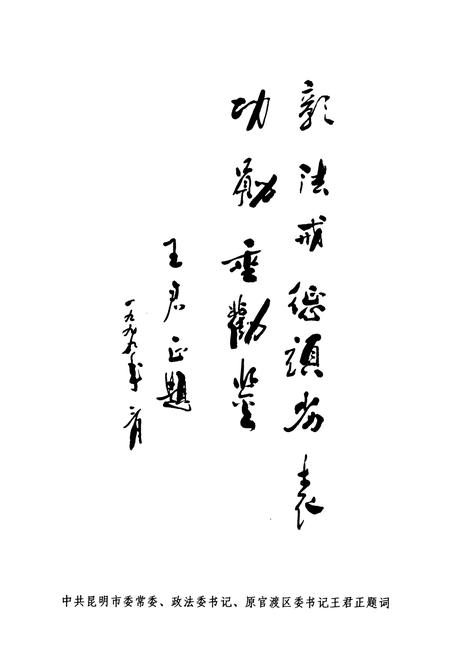 彰法戒德表
功勋垂勸鉴
王君正題
一九九九年二月
中共昆明市委常委、政法委书记、原官渡区委书记王君正题词